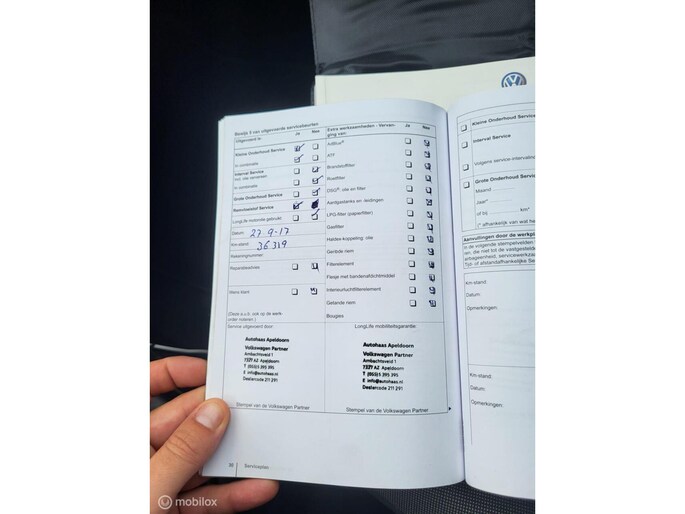 Bewijs 3 van uitgevoerde servicebeurten
Uitgevoerd is: Ja Nee
Kleine Onderhoud Service
In combinatie
Interval Service
In combinatie
Grote Onderhoud Service
Remvloeistof Service
LongLife motorolie gebruikt
Datum: 27-9-17
Km-stand: 36319
Rekeningnummer:
Reparatieadvies
Wens klant
(Deze a.u.b. ook op de werk-
order noteren.)
Extra werkzaamheden - Vervan-
ging van: Ja Nee
AdBlue®
ATF
Brandstoffilter
Roetfilter
DSG®: olie en filter
Aardgastanks en -leidingen
LPG-filter (papierfilter)
Gasfilter
Haldex-koppeling: olie
Geribde riem
Filterelement
Flesje met bandenafdichtmiddel
Interieurluchtfilterelement
Getande riem
Bougies
Service uitgevoerd door:
Autohaas Apeldoorn
Volkswagen Partner
Ambachtsveld 1
7327 AZ Apeldoorn
T (055)5 395 395
E info@autohaas.nl
Dealercode 211 291
Stempel van de Volkswagen Partner
LongLife mobiliteitsgarantie:
Autohaas Apeldoorn
Volkswagen Partner
Ambachtsveld 1
7327 AZ Apeldoorn
T (055)5 395 395
E info@autohaas.nl
Dealercode 211 291
Stempel van de Volkswagen Partner
Serviceplan
Kleine Onderhoud Service
Interval Service
Volgens service-intervalindi
Grote Onderhoud Service
Maand
Jaar*
of bij km*
(* afhankelijk van wat he
Aanvullingen door de werkpla
In de volgende stempelvelden
Km-stand:
Datum:
Opmerkingen:
Km-stand:
Datum:
Opmerkingen:
mobilox